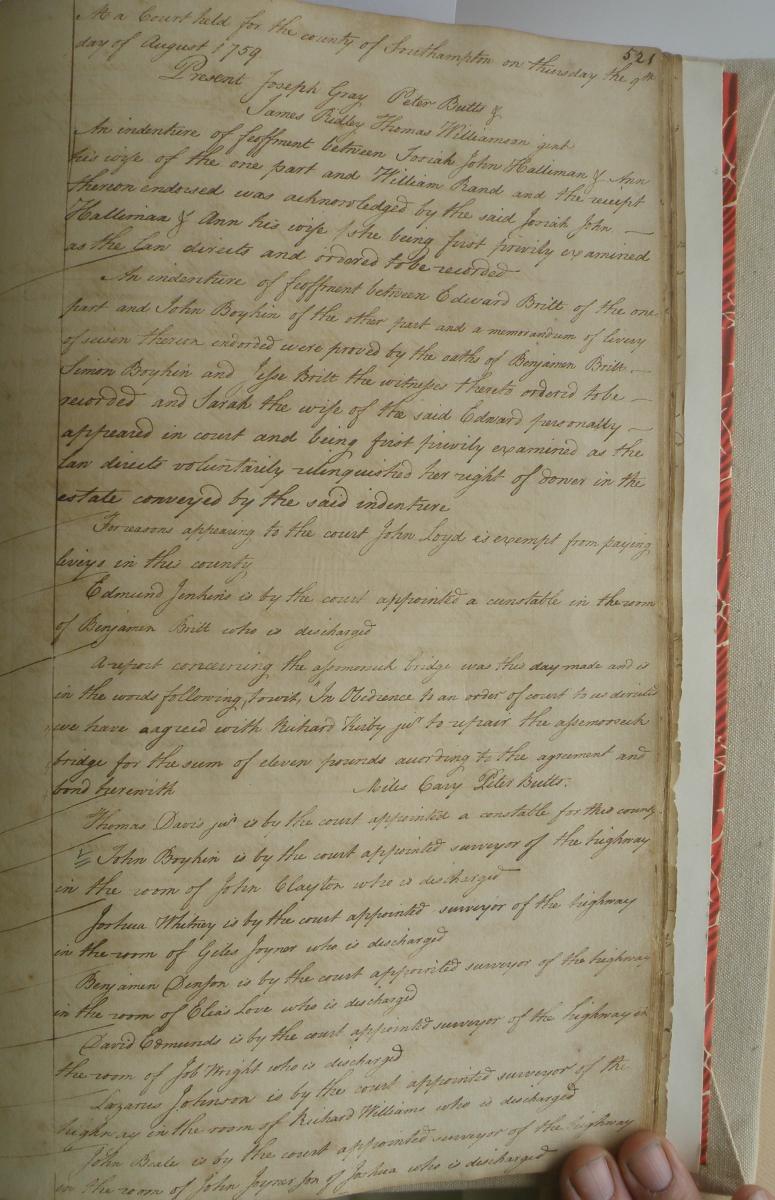 521
At a Court held for the county of Southampton on thursday the 9th
day of August 1759
Present Joseph Gray Peter Butts &
James Ridley Thomas Williamson gent
An indenture of feoffment between Josiah John Halliman & Ann
his wife of the one part and William Rand and the receipt
thereon endorsed was acknowledged by the said Josiah John —
Halliman & Ann his wife she being first privily examined
as the Law directs and ordered to be recorded
An indenture of feoffment between Edward Britt of the one
part and John Boykin of the other part and a memorandum of livery
of seisen thereon endorsed were proved by the oaths of Benjamen Britt —
Simon Boykin and Jesse Britt the witnesses thereto ordered to be —
recorded and Sarah the wife of the said Edward personally —
appeared in court and being first privily examined as the
Law directs voluntarily relinquished her right of dower in the
estate conveyed by the said indenture
For reasons appearing to the court John Loyd is exempt from paying
leveys in this county
Edmund Jenkins is by the court appointed a constable in the room
of Benjamen Britt who is discharged
A report concerning the assmoosuck bridge was this day made and is
in the words following, towit, "In Obedience to an order of court to us directed
we have aagreed with Richard Kirby junr to repair the
bridge for the sum of eleven pounds according to the agreement and
bond herewith Miles Cary Peter Butts.
Thomas Davis junr is by the court appointed a constable for this county
John Boykin is by the court appointed surveyor of the highway
in the room of John Clayton who is discharged
Joshua Whitney is by the court appointed surveyor of the highway
in the room of Giles Joyner who is discharged
Benjamen Denson is by the court appointed surveyor of the highway
in the room of Elias Love who is discharged
David Edmunds is by the court appointed surveyor of the highway in
the room of Job Wright who is discharged
Lazarus Johnson is by the court appointed surveyor of the
highway in the room of Richard Williams who is discharged
John Beale is by the court appointed surveyor of the highway
in the room of John Joyner son of Joshua who is discharged